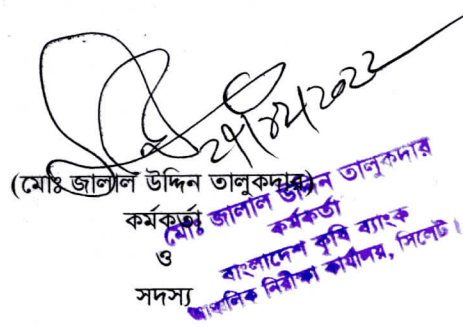 (মোঃ জালাল উদ্দিন তালুকদার)
কর্মকর্তা
ও
সদস্য
মোঃ জালাল উদ্দিন তালুকদার
কর্মকর্তা
বাংলাদেশ কৃষি ব্যাংক
আঞ্চলিক নিরীক্ষা কার্যালয়, সিলেট।